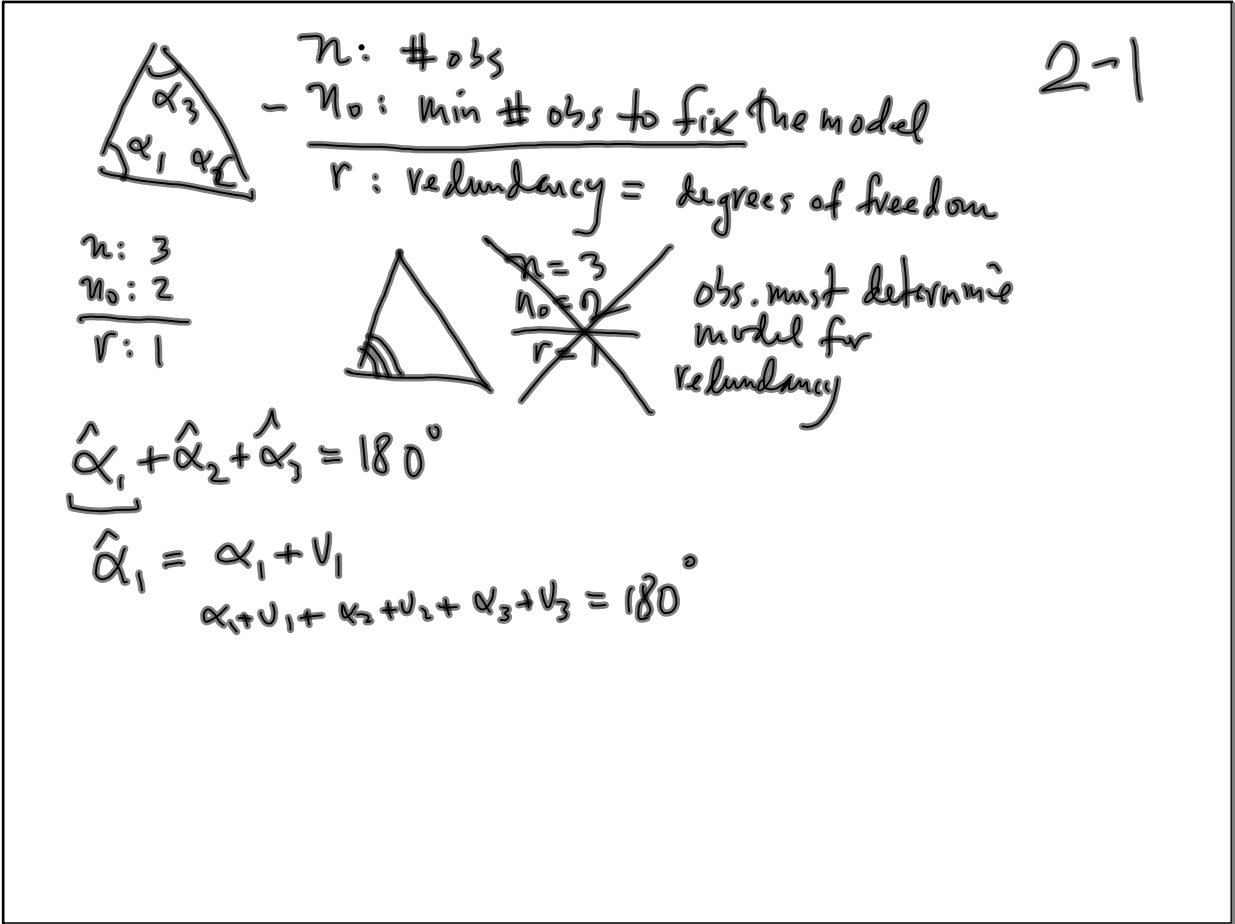 2-1
n: # obs
- n₀: min # obs to fix the model
r: redundancy = degrees of freedom
α₃
α₁ α₂
n: 3
n₀: 2
r: 1
n = 3
n₀ = 2
r = 1
obs. must determine
model for
redundancy
α̂₁ + α̂₂ + α̂₃ = 180°
α̂₁ = α₁ + v₁
α₁ + v₁ + α₂ + v₂ + α₃ + v₃ = 180°